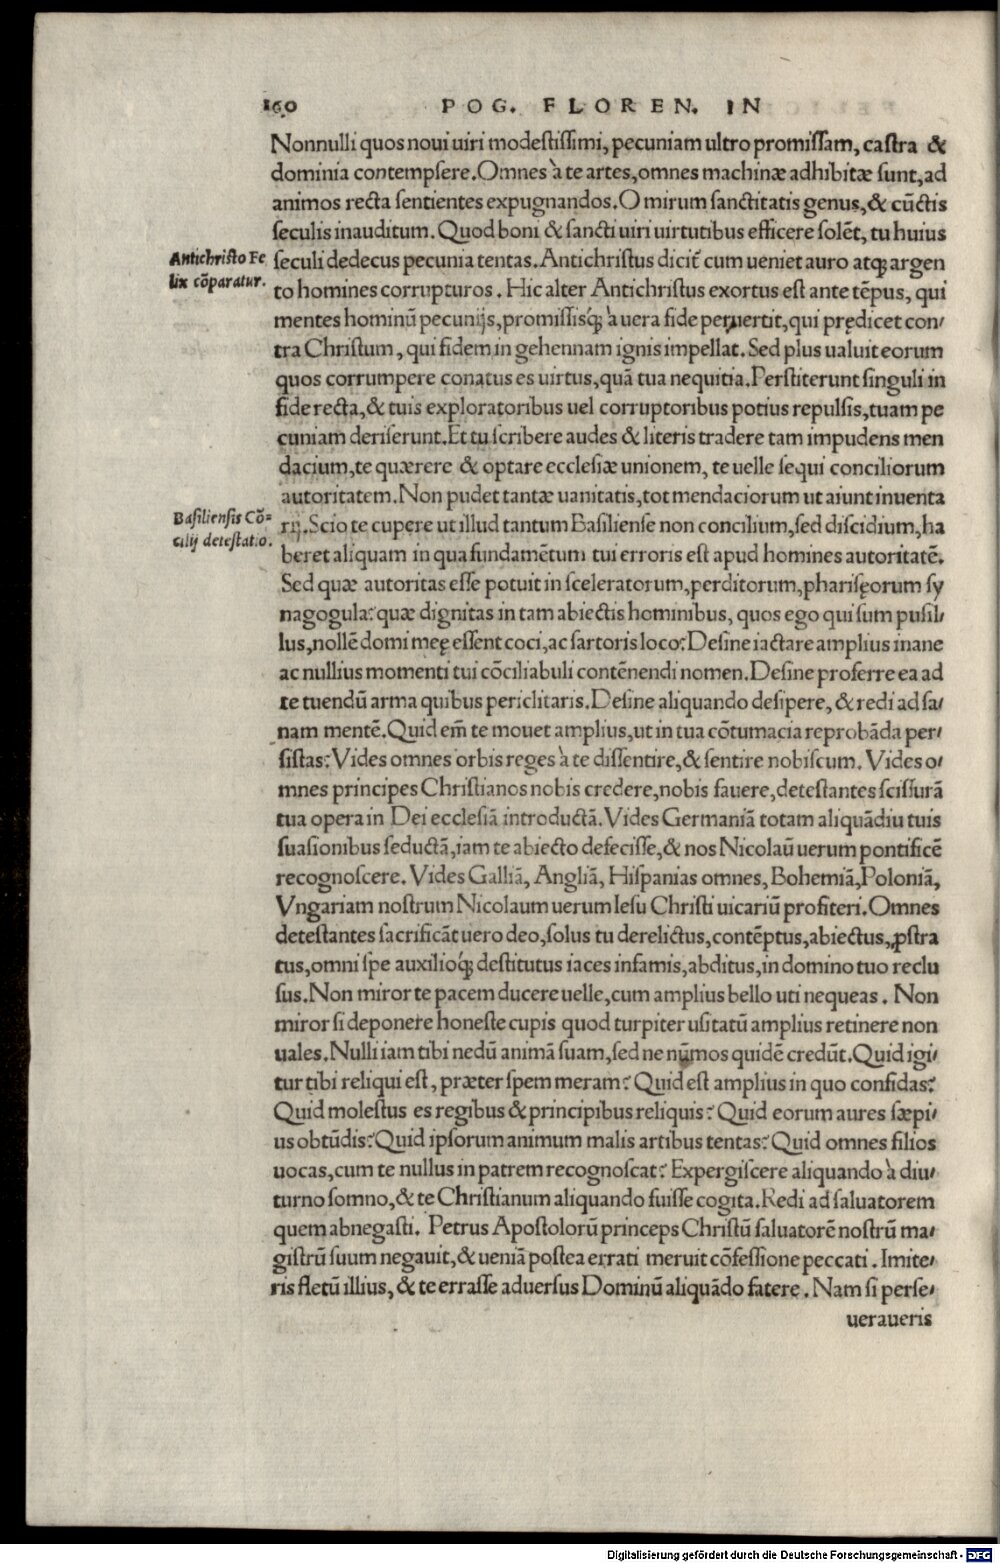 160 POG. FLOREN. IN
Nonnulli quos noui uiri modestissimi, pecuniam ultro promissam, castra &
dominia contempsere. Omnes à te artes, omnes machinæ adhibitæ sunt, ad
animos recta sentientes expugnandos. O mirum sanctitatis genus, & cūctis
seculis inauditum. Quod boni & sancti uiri uirtutibus efficere solēt, tu huius
Antichristo Fe
lix cōparatur.
seculi dedecus pecunia tentas. Antichristus dicit̃ cum ueniet auro atq̃ argen
to homines corrupturos. Hic alter Antichristus exortus est ante tēpus, qui
mentes hominū pecunijs, promissisq̃ à uera fide peruertit, qui prędicet con/
tra Christum, qui fidem in gehennam ignis impellat. Sed plus ualuit eorum
quos corrumpere conatus es uirtus, quā tua nequitia. Perstiterunt singuli in
fide recta, & tuis exploratoribus uel corruptoribus potius repulsis, tuam pe
cuniam deriserunt. Et tu scribere audes & literis tradere tam impudens men
dacium, te quærere & optare ecclesiæ unionem, te uelle sequi conciliorum
autoritatem. Non pudet tantæ uanitatis, tot mendaciorum ut aiunt inuenta
Basiliensis Cō=
cilij detestatio.
rij. Scio te cupere ut illud tantum Basiliense non concilium, sed discidium, ha
beret aliquam in qua fundamētum tui erroris est apud homines autoritatē.
Sed quæ autoritas esse potuit in sceleratorum, perditorum, pharisęorum sy
nagogula? quæ dignitas in tam abiectis hominibus, quos ego qui sum pusil/
lus, nollē domi meę essent coci, ac sartoris loco? Desine iactare amplius inane
ac nullius momenti tui cōciliabuli contēnendi nomen. Desine proferre ea ad
te tuendū arma quibus periclitaris. Desine aliquando desipere, & redi ad sa/
nam mentē. Quid em̃ te mouet amplius, ut in tua cōtumacia reprobāda per/
sistas? Vides omnes orbis reges à te dissentire, & sentire nobiscum. Vides o/
mnes principes Christianos nobis credere, nobis fauere, detestantes scissurā
tua opera in Dei ecclesiā introductā. Vides Germaniā totam aliquādiu tuis
suasionibus seductā, iam te abiecto defecisse, & nos Nicolaū uerum pontificē
recognoscere. Vides Galliā, Angliā, Hispanias omnes, Bohemiā, Poloniā,
Vngariam nostrum Nicolaum uerum Iesu Christi uicariū profiteri. Omnes
detestantes sacrificāt uero deo, solus tu derelictus, contēptus, abiectus, ꝓstra
tus, omni spe auxilioq̃ destitutus iaces infamis, abditus, in domino tuo reclu
sus. Non miror te pacem ducere uelle, cum amplius bello uti nequeas. Non
miror si deponere honeste cupis quod turpiter usitatū amplius retinere non
uales. Nulli iam tibi nedū animā suam, sed ne nūmos quidē credūt. Quid igi/
tur tibi reliqui est, præter spem meram? Quid est amplius in quo confidas?
Quid molestus es regibus & principibus reliquis? Quid eorum aures sæpi/
us obtūdis? Quid ipsorum animum malis artibus tentas? Quid omnes filios
uocas, cum te nullus in patrem recognoscat? Expergiscere aliquando à diu/
turno somno, & te Christianum aliquando fuisse cogita. Redi ad saluatorem
quem abnegasti. Petrus Apostolorū princeps Christū saluatorē nostrū ma/
gistrū suum negauit, & ueniā postea errati meruit cōfessione peccati. Imite/
ris fletū illius, & te errasse aduersus Dominū aliquādo fatere. Nam si perse/
ueraueris
Digitalisierung gefördert durch die Deutsche Forschungsgemeinschaft - DFG